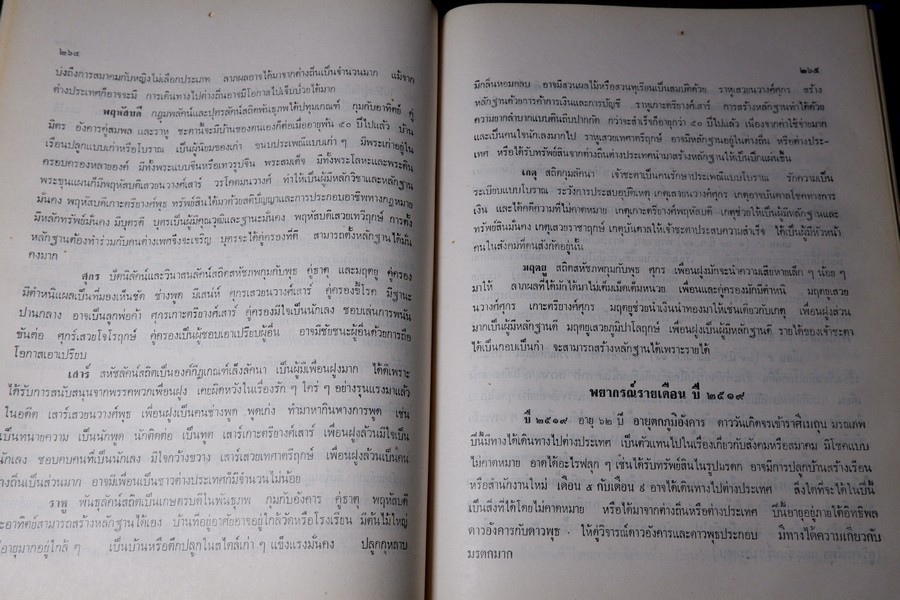 ๒๖๔
บ่งถึงการสมาคมกับหญิงไม่เลือกประเภท ลาภผลอาจได้มาจากต่างถิ่นเป็นจำนวนมาก แม้จาก
ต่างประเทศก็อาจจะมี การเดินทางไปต่างถิ่นอาจมีโอกาสไปเจ็บป่วยได้มาก
พฤหัสบดี กฎุมพลัคน์และปุตรลัคน์สถิตพันธุภพได้ปทุมเกณฑ์ กุมกับอาทิตย์ คู่
มิตร อังคารคู่สมพล และราหู ชะตานี้จะมีบ้านของตนเองก็ต่อเมื่ออายุพ้น ๔๐ ปีไปแล้ว บ้าน
เรือนปลูกแบบเก่าหรือโบราณ เป็นผู้นิยมของเก่า ขนบประเพณีแบบเก่า ๆ มีพระเก่าอยู่ใน
ครอบครองหลายองค์ มีทั้งพระแบบจีนหรือเทวรูปจีน พระสมเด็จ มีทั้งพระโลหะและพระดิน
พระขุนแผนก็มีพฤหัสบดีเสวยนวางค์เสาร์ วรโคตมนวางค์ ทำให้เป็นผู้มีหลักวิชาและหลักฐาน
มั่นคง พฤหัสบดีเกาะตรียางค์พุธ ทรัพย์สินได้มาด้วยสติปัญญาและการประกอบอาชีพทางกฎหมาย
มีหลักทรัพย์มั่นคง มีบุตรดี บุตรเป็นผู้มีคุณวุฒิและฐานะมั่นคง พฤหัสบดีเสวยเทวีฤกษ์ การตั้ง
หลักฐานต้องทำร่วมกับคนต่างเพศจึงจะเจริญ บุตรจะได้คู่ครองที่ดี สามารถตั้งหลักฐานได้มั่น
คงมาก
ศุกร์ ปัตนิลัคน์และวินาสนลัคน์สถิตสหัชภพกุมกับพุธ คู่ธาตุ และมฤตยู คู่ครอง
มีตำหนิแผลเป็นที่มองเห็นชัด ช่างพูด มีเสน่ห์ ศุกร์เสวยนวางค์เสาร์ คู่ครองขี้โรค มีฐานะ
ปานกลาง อาจเป็นลูกพ่อค้า ศุกร์เกาะตรียางค์เสาร์ คู่ครองมีใจเป็นนักเลง ชอบเล่นการพนัน
ขันต่อ ศุกร์เสวยโจโรฤกษ์ คู่ครองเป็นผู้ชอบเอาเปรียบผู้อื่น อาจมีชัยชนะผู้อื่นด้วยการถือ
โอกาสเอาเปรียบ
เสาร์ สหัชลัคน์สถิตเป็นองค์กัฏเกณฑ์เล็งลัคนา เป็นผู้มีเพื่อนฝูงมาก ได้ดีเพราะ
ได้รับการสนับสนุนจากพรรคพวกเพื่อนฝูง เคยผิดหวังในเรื่องรัก ๆ ใคร่ ๆ อย่างรุนแรงมาแล้ว
ในอดีต เสาร์เสวยนวางค์พุธ เพื่อนฝูงเป็นคนช่างพูด พูดเก่ง ทำมาหากินทางการพูด เช่น
เป็นทนายความ เป็นนักพูด นักติดต่อ เป็นทูต เสาร์เกาะตรียางค์เสาร์ เพื่อนฝูงล้วนมีใจเป็น
นักเลง ชอบคบคนที่เป็นนักเลง มีใจกว้างขวาง เสาร์เสวยเทศาตรีฤกษ์ เพื่อนฝูงล้วนเป็นคน
างถิ่นเป็นส่วนมาก อาจมีเพื่อนเป็นชาวต่างประเทศก็มีจำนวนไม่น้อย
ราหู พันธุลัคน์สถิตเป็นเกษตรบดีในพันธุภพ กุมกับอังคาร คู่ธาตุ พฤหัสบดี
ะอาทิตย์สามารถสร้างหลักฐานได้เอง บ้านที่อยู่อาศัยอาจอยู่ใกล้วัดหรือโรงเรียน มีต้นไม้ใหญ่
อายุมากอยู่ใกล้ ๆ เป็นบ้านหรือตึกปลูกในสไตล์เก่า ๆ แข็งแรงมั่นคง ปลูกกุหลาบ
๒๖๕
มีกลิ่นหอมตลบ อาจมีสวนผลไม้หรือสวนทุเรียนเป็นสมบัติด้วย ราหูเสวยนวางค์ศุกร์ สร้าง
หลักฐานด้วยการค้าการเงินและการบัญชี ราหูเกาะตรียางค์เสาร์ การสร้างหลักฐานทำได้ด้วย
ความยากลำบากแบบตีนถีบปากกัด กว่าจะสำเร็จก็อายุกว่า ๔๐ ปีไปแล้ว เนื่องจากค่าใช้จ่ายมาก
และเป็นคนใจนักเลงมากไป ราหูเสวยเทศาตรีฤกษ์ อาจมีหลักฐานอยู่ในต่างถิ่น หรือต่างประ-
เทศ หรือได้รับทรัพย์สินจากต่างถิ่นต่างประเทศนำมาสร้างหลักฐานให้เป็นปึกแผ่นขึ้น
เกตุ สถิตกุมลัคนา เจ้าชะตาเป็นคนรักษาประเพณีแบบโบราณ รักความเป็น
ระเบียบแบบโบราณ ระวังการประสบอุบัติเหตุ เกตุเสวยนวางค์ศุกร์ เกตุอาจบันดาลโชคทางการ
เงิน และได้คดีความที่ไม่คาดหมาย เกตุเกาะตรียางค์พฤหัสบดี เกตุช่วยให้เป็นผู้มีหลักฐานและ
ทรัพย์สินมั่นคง เกตุเสวยราชาฤกษ์ เกตุบันดาลให้เจ้าชะตาประสบความสำเร็จ ได้เป็นผู้มีหัวหน้า
คนในสังคมที่ตนสังกัดอยู่นั้น
มฤตยู สถิตสหัชภพกุมกับพุธ ศุกร เพื่อนฝูงมักจะนำความเสียหายเล็ก ๆ น้อย ๆ
มาให้ ลาภผลที่ได้มักได้มาไม่เต็มเม็ดเต็มหน่วย เพื่อนและคู่ครองมักมีตำหนิ มฤตยูเสวย
นวางค์ศุกร์ เกาะตรียางค์พฤหัสบดี มฤตยูช่วยนำเงินนำทองมาให้เช่นเดียวกับเกตุ เพื่อนฝูงส่วน
มากเป็นผู้มีหลักฐานดี มฤตยูเสวยภูมิปาโลฤกษ์ เพื่อนฝูงเป็นผู้มีหลักฐาน รายได้ของเจ้าชะตา
ได้เป็นกอบเป็นกำ จะสามารถสร้างหลักฐานได้เพราะรายได้
พยากรณ์รายเดือน ปี ๒๕๑๙
ปี ๒๕๑๙ อายุ ๖๒ ปี อายุตกภูมิอังคาร ดาววันเกิดจรเข้าราศีเมถุน มรณภพ
ปีนี้มีทางได้เดินทางไปต่างประเทศ เป็นตัวแทนไปในเรื่องเกี่ยวกับสังคมหรือสมาคม มีโชคแบบ
ไม่คาดหมาย อาจได้อะไรฟลุก ๆ เช่นได้รับทรัพย์สินในรูปมรดก อาจมีการปลูกบ้านสร้างเรือน
หรือสำนักงานใหม่ เดือน ๕ กับเดือน ๙ อาจได้เดินทางไปต่างประเทศ สิ่งใดที่จะได้ในปีนี้
เป็นสิ่งที่ได้โดยไม่คาดหมาย หรือได้มาจากต่างถิ่นหรือต่างประเทศ ปีนี้อายุอยู่ภายใต้อิทธิพล
ดาวอังคารกับดาวพุธ ให้ดูวิจารณ์ดาวอังคารและดาวพุธประกอบ มีทางได้ความเกี่ยวกับ
มรดกมาก